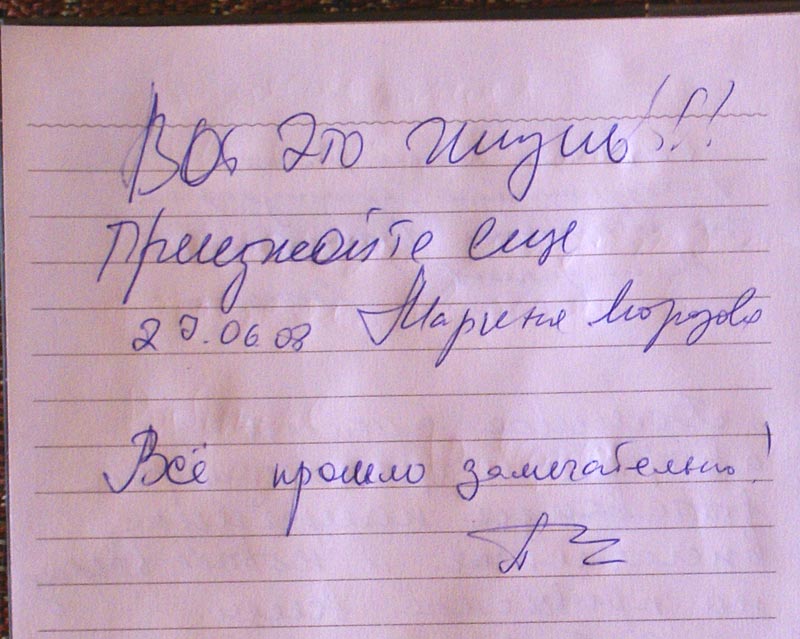 Вот это жизнь!!!
Приезжайте еще
27.06.08 Марина Морозова
Всё прошло замечательно!